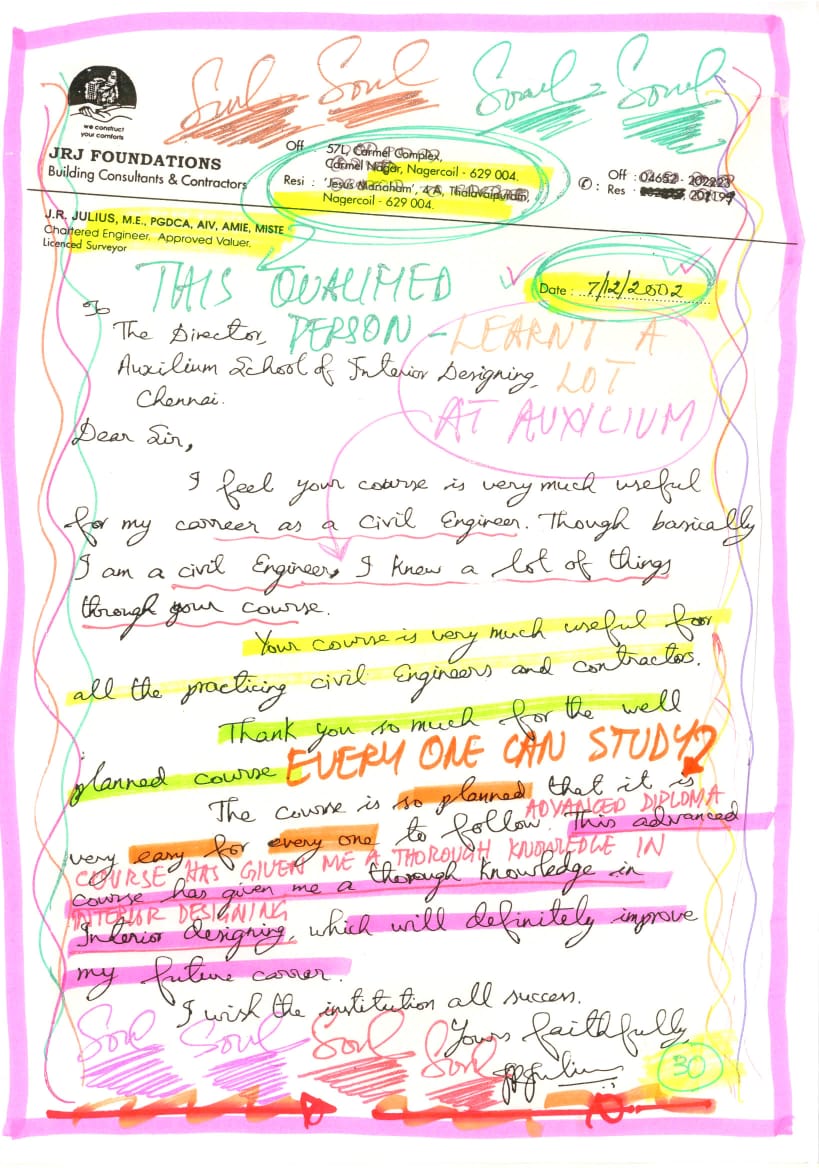 Soul Soul Soul Soul
we construct
your comforts
JRJ FOUNDATIONS
Building Consultants & Contractors
Off 57L, Carmel Complex,
Carmel Nagar, Nagercoil - 629 004.
Resi : 'Jesus Manoham', 4 A, Thalavaipuram,
Nagercoil - 629 004.
Off : 04652 -
Res
J.R. JULIUS, M.E., PGDCA, AIV, AMIE, MISTE
Chartered Engineer. Approved Valuer.
Licenced Surveyor
THIS QUALIFIED
PERSON - LEARNT A
LOT
AT AUXILIUM
Date : 7/12/2002
To
The Director,
Auxilium School of Interior Designing,
Chennai.
Dear Sir,
I feel your course is very much useful
for my carreer as a Civil Engineer. Though basically
I am a civil Engineer, I knew a lot of things
through your course.
Your course is very much useful for
all the practicing civil Engineers and contractors.
Thank you so much for the well
planned course
EVERY ONE CAN STUDY?
The course is so planned that it is
ADVANCED DIPLOMA
very easy for every one to follow. This advanced
COURSE HAS GIVEN ME A THOROUGH KNOWLEDGE IN
course has given me a thorough knowledge in
INTERIOR DESIGNING
Interior designing, which will definitely improve
my future carrer.
I wish the institution all success.
Yours faithfully,
Soul Soul Soul Soul
30